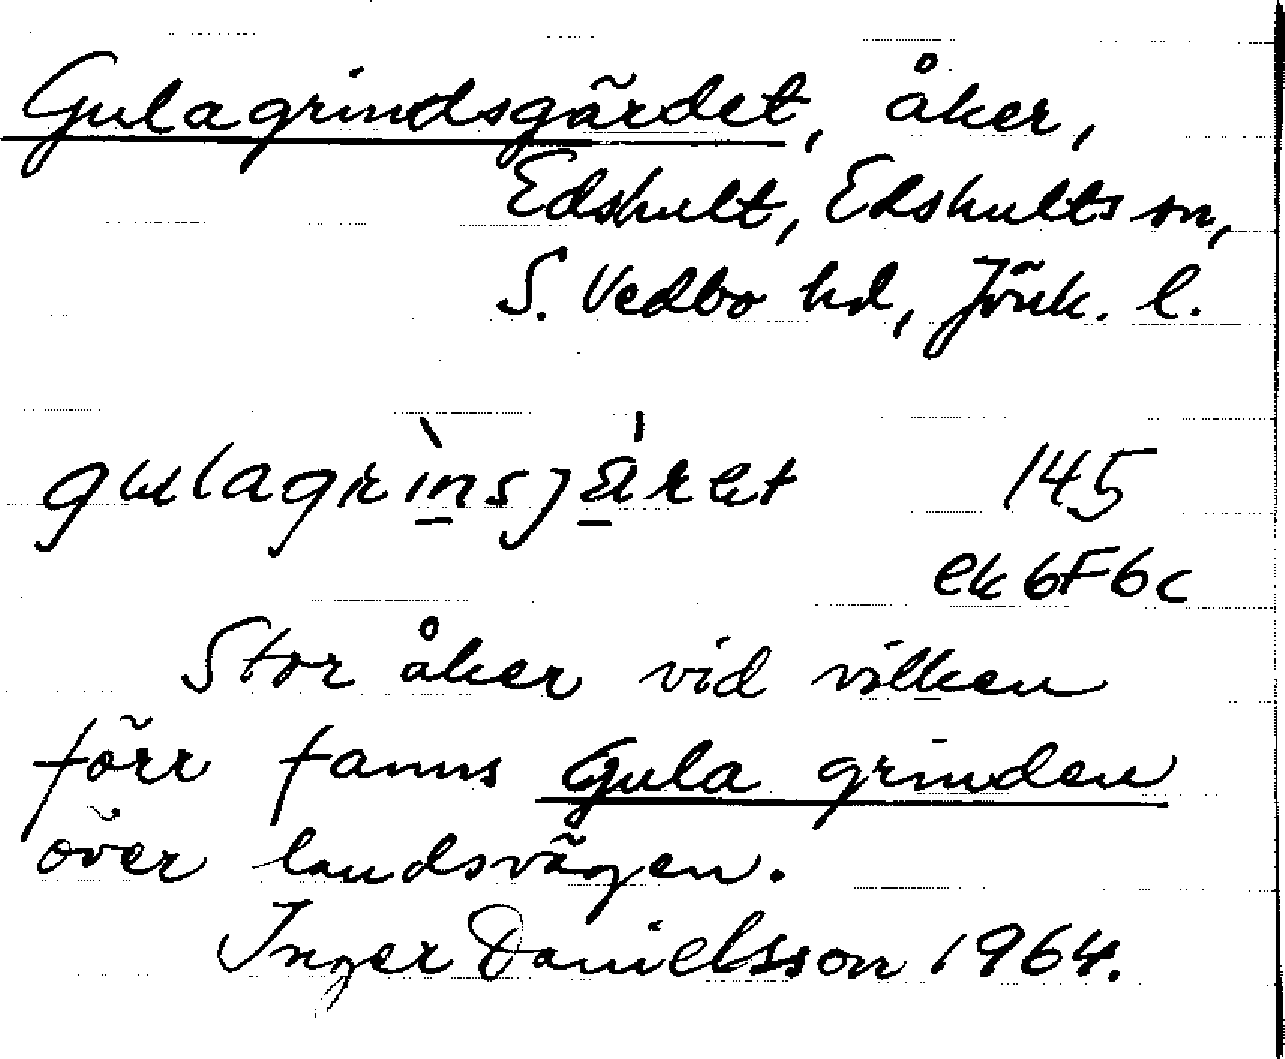 Gulagrindsgärdet, åker,
Edshult, Edshults sn,
S. Vedbo hd, Jönk. l.
gulagrìnsjäret 145
ek 6F6c
Stor åker vid vilken
förr fanns Gula grinden
över landsvägen.
Inger Danielsson 1964.